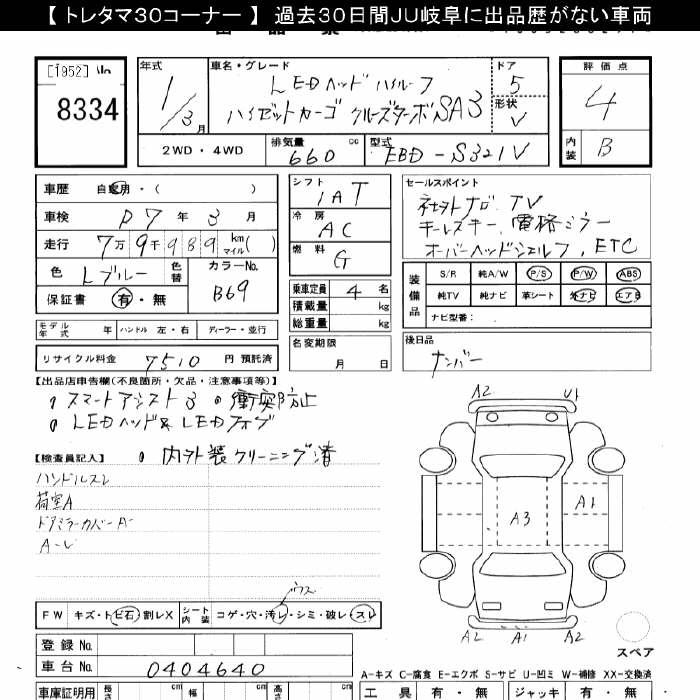 【 トレタマ30コーナー 】 過去30日間JU岐阜に出品歴がない車両
[1952]
8334
年式 1/3月
車名・グレード LEDヘッド ハイルーフ
ハイゼットカーゴ クルーズターボSA3
ドア 5
形状 V
評価点 4
内装 B
2WD・4WD
排気量 660 cc
型式 EBD-S321V
車歴 自家用・( )
車検 R7年3月
走行 7万9千989 km マイル( )
色 Lブルー 色替
カラーNo. B69
保証書 有・無
シフト 1AT
冷房 AC
燃料 G
セールスポイント
社外ナビ TV
キーレスキー, 電格ミラー
オーバーヘッドシェルフ, ETC
装備品 S/R 純A/W P/S P/W ABS
純TV 純ナビ 革シート 外ナビ エアB
ナビ型番:
乗車定員 4 名
積載量 kg
総重量 kg
名変期限 月 日
後日品
ナンバー
モデル年式 年 ハンドル 左・右 ディーラー・並行
リサイクル料金 7510 円 預託済
【出品店申告欄(不良箇所・欠品・注意事項等)】
スマートアシスト3 衝突防止
LEDヘッド& LEDフォグ
内外装クリーニング済
【検査員記入】
ハンドルスレ
荷室A
ドアミラーカバーA
A2 U1
A3 A1
A2 A1 A2
スペア
FW キズ・トビ石・割レX シート内装 コゲ・穴・汚レ・シミ・破レ・スレ
登録No.
車台No. 0404640
A-キズ C-腐食 E-エクボ S-サビ U-凹ミ W-補修 XX-交換済
車庫証明用 長さ cm 幅 cm 高さ cm
工具 有・無 ジャッキ 有・無